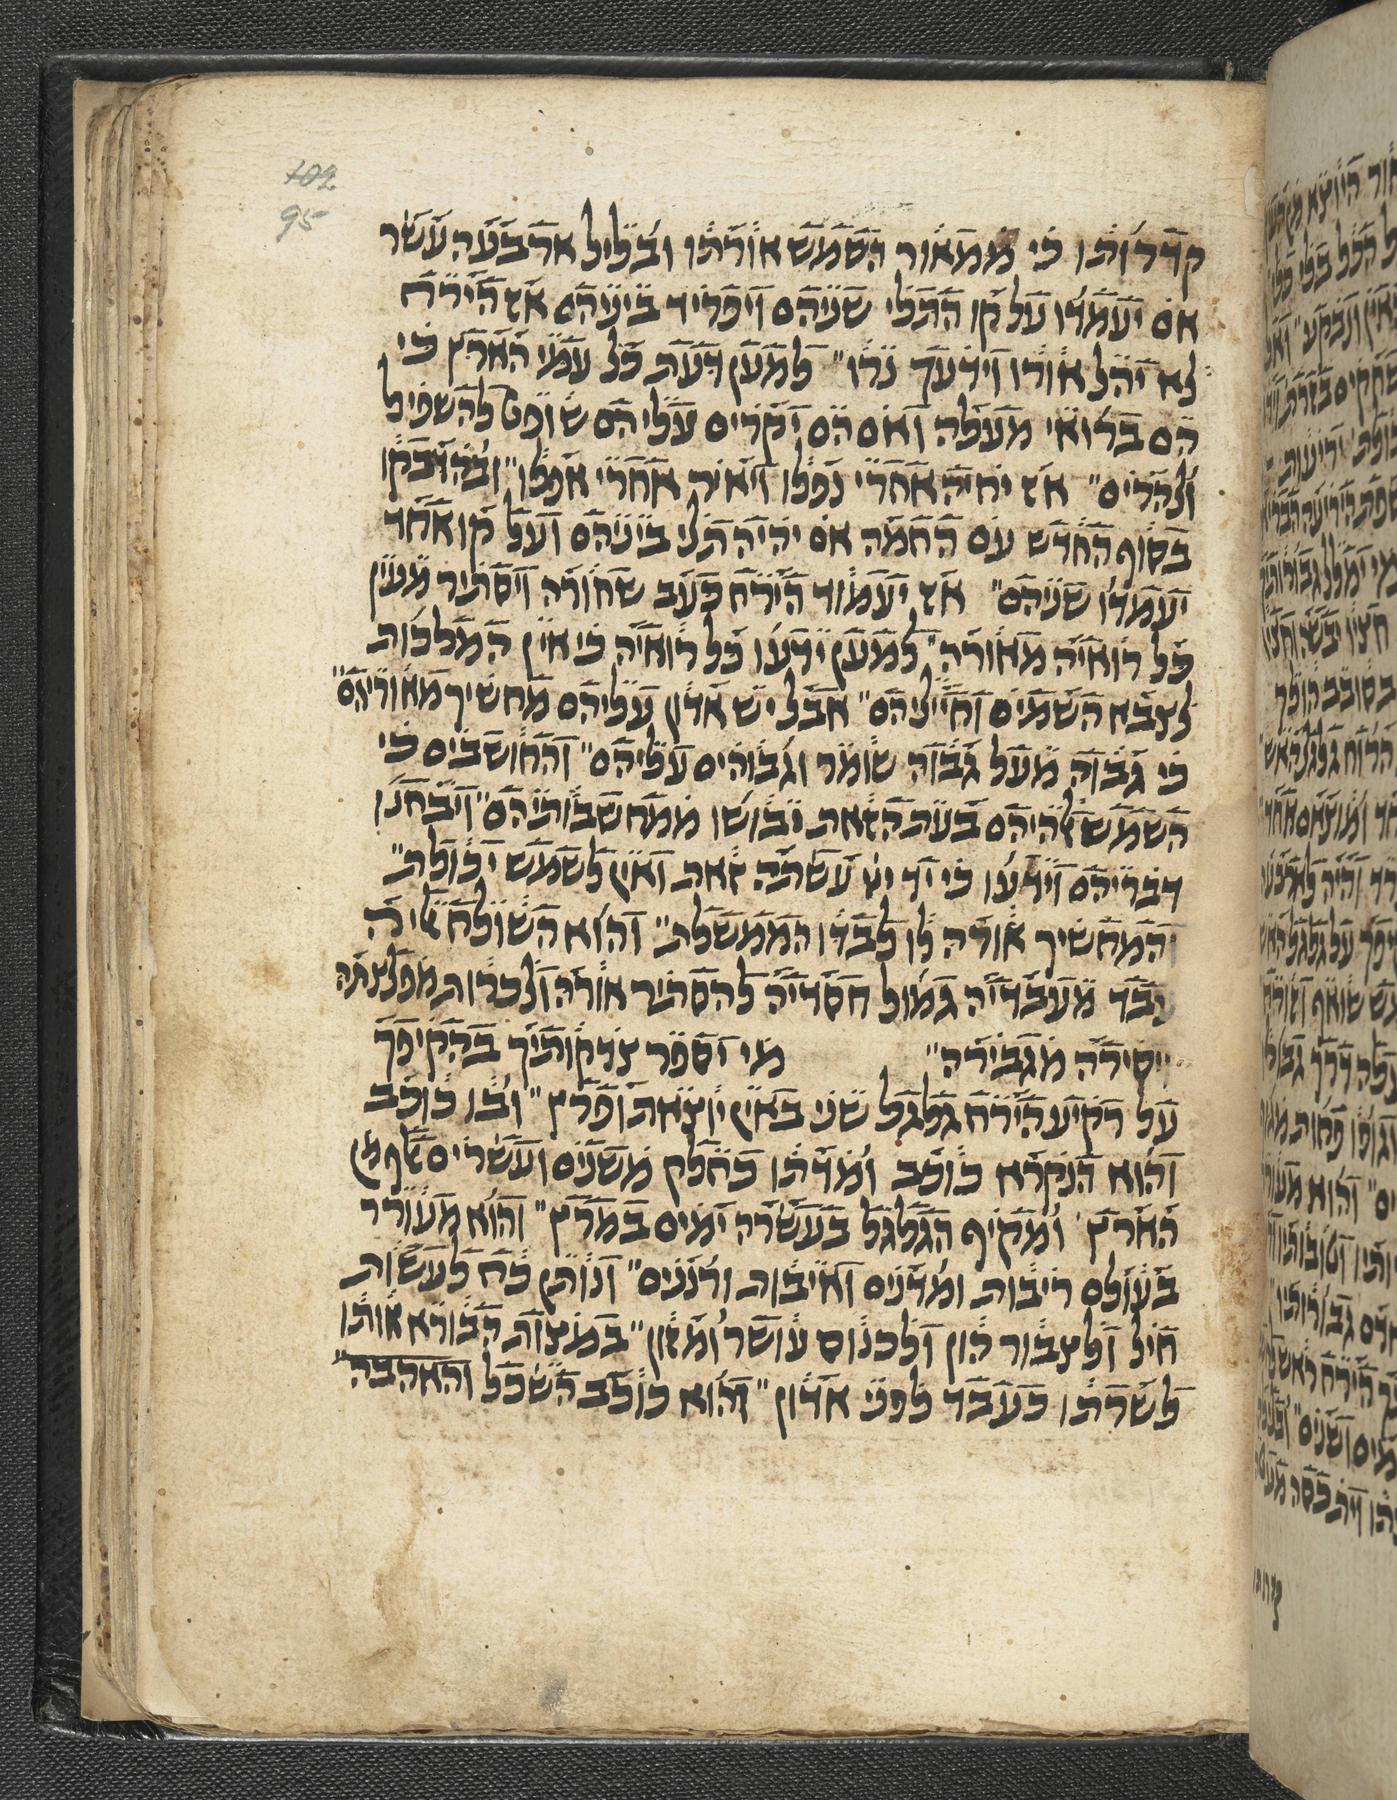 102
95
קדרותו כי ממאור השמש אורתו ובליל ארבעה עשר
אם יעמדו על קו התלי שניהם ויפריד ביניהם אז הירח
לא יהל אורו וידעך נרו" למען דעת כל עמי הארץ כי
הם ברואי מעלה ואם הם יקרים עליהם שופט להשפיל
ולהרים" אז יחיה אחרי נפלו ויאיר אחרי אפלו" ובהדבקו
בסוף החדש עם החמה אם יהיה תלי ביניהם ועל קו אחד
יעמדו שניהם" אז יעמוד הירח כעב שחורה ויסתיר מעין
כל רואיה מאורה" למען ידעו כל רואיה כי אין המלכות
לצבא השמים וחייליהם" אבל יש אדון עליהם מחשיך מאוריהם"
כי גבוה מעל גבוה שומר וגבוהים עליהם" והחושבים כי
השמש אלהיהם בעת הזאת יבושו ממחשבותיהם" ויבחנו
דבריהם וידעו כי יד יי עשתה זאת ואין לשמש יכולת"
והמחשיך אורה לו לבדו הממשלת" והוא השולח אליה
עבד מעבדיה גמול חסדיה להסתיר אורה ולכרות מפלצתה
ויסירה מגבירה" מי יספר צדקותיך בהקיפך
על רקיע הירח גלגל שני באין יוצאת ופרץ" ובו כוכב
והוא הנקרא כוכב ומדתו כחלק משנים ועשרים אלף מן
הארץ ומקיף הגלגל בעשרה ימים במרץ" והוא מעורר
בעולם ריבות ומדנים ואיבות ורננים" ונותן כח לעשות
חיל ולצבור הון ולכנוס עושר ומזון" במצות הבורא אותו
לשרתו כעבד לפני אדון" והוא כוכב השכל והאהבה"